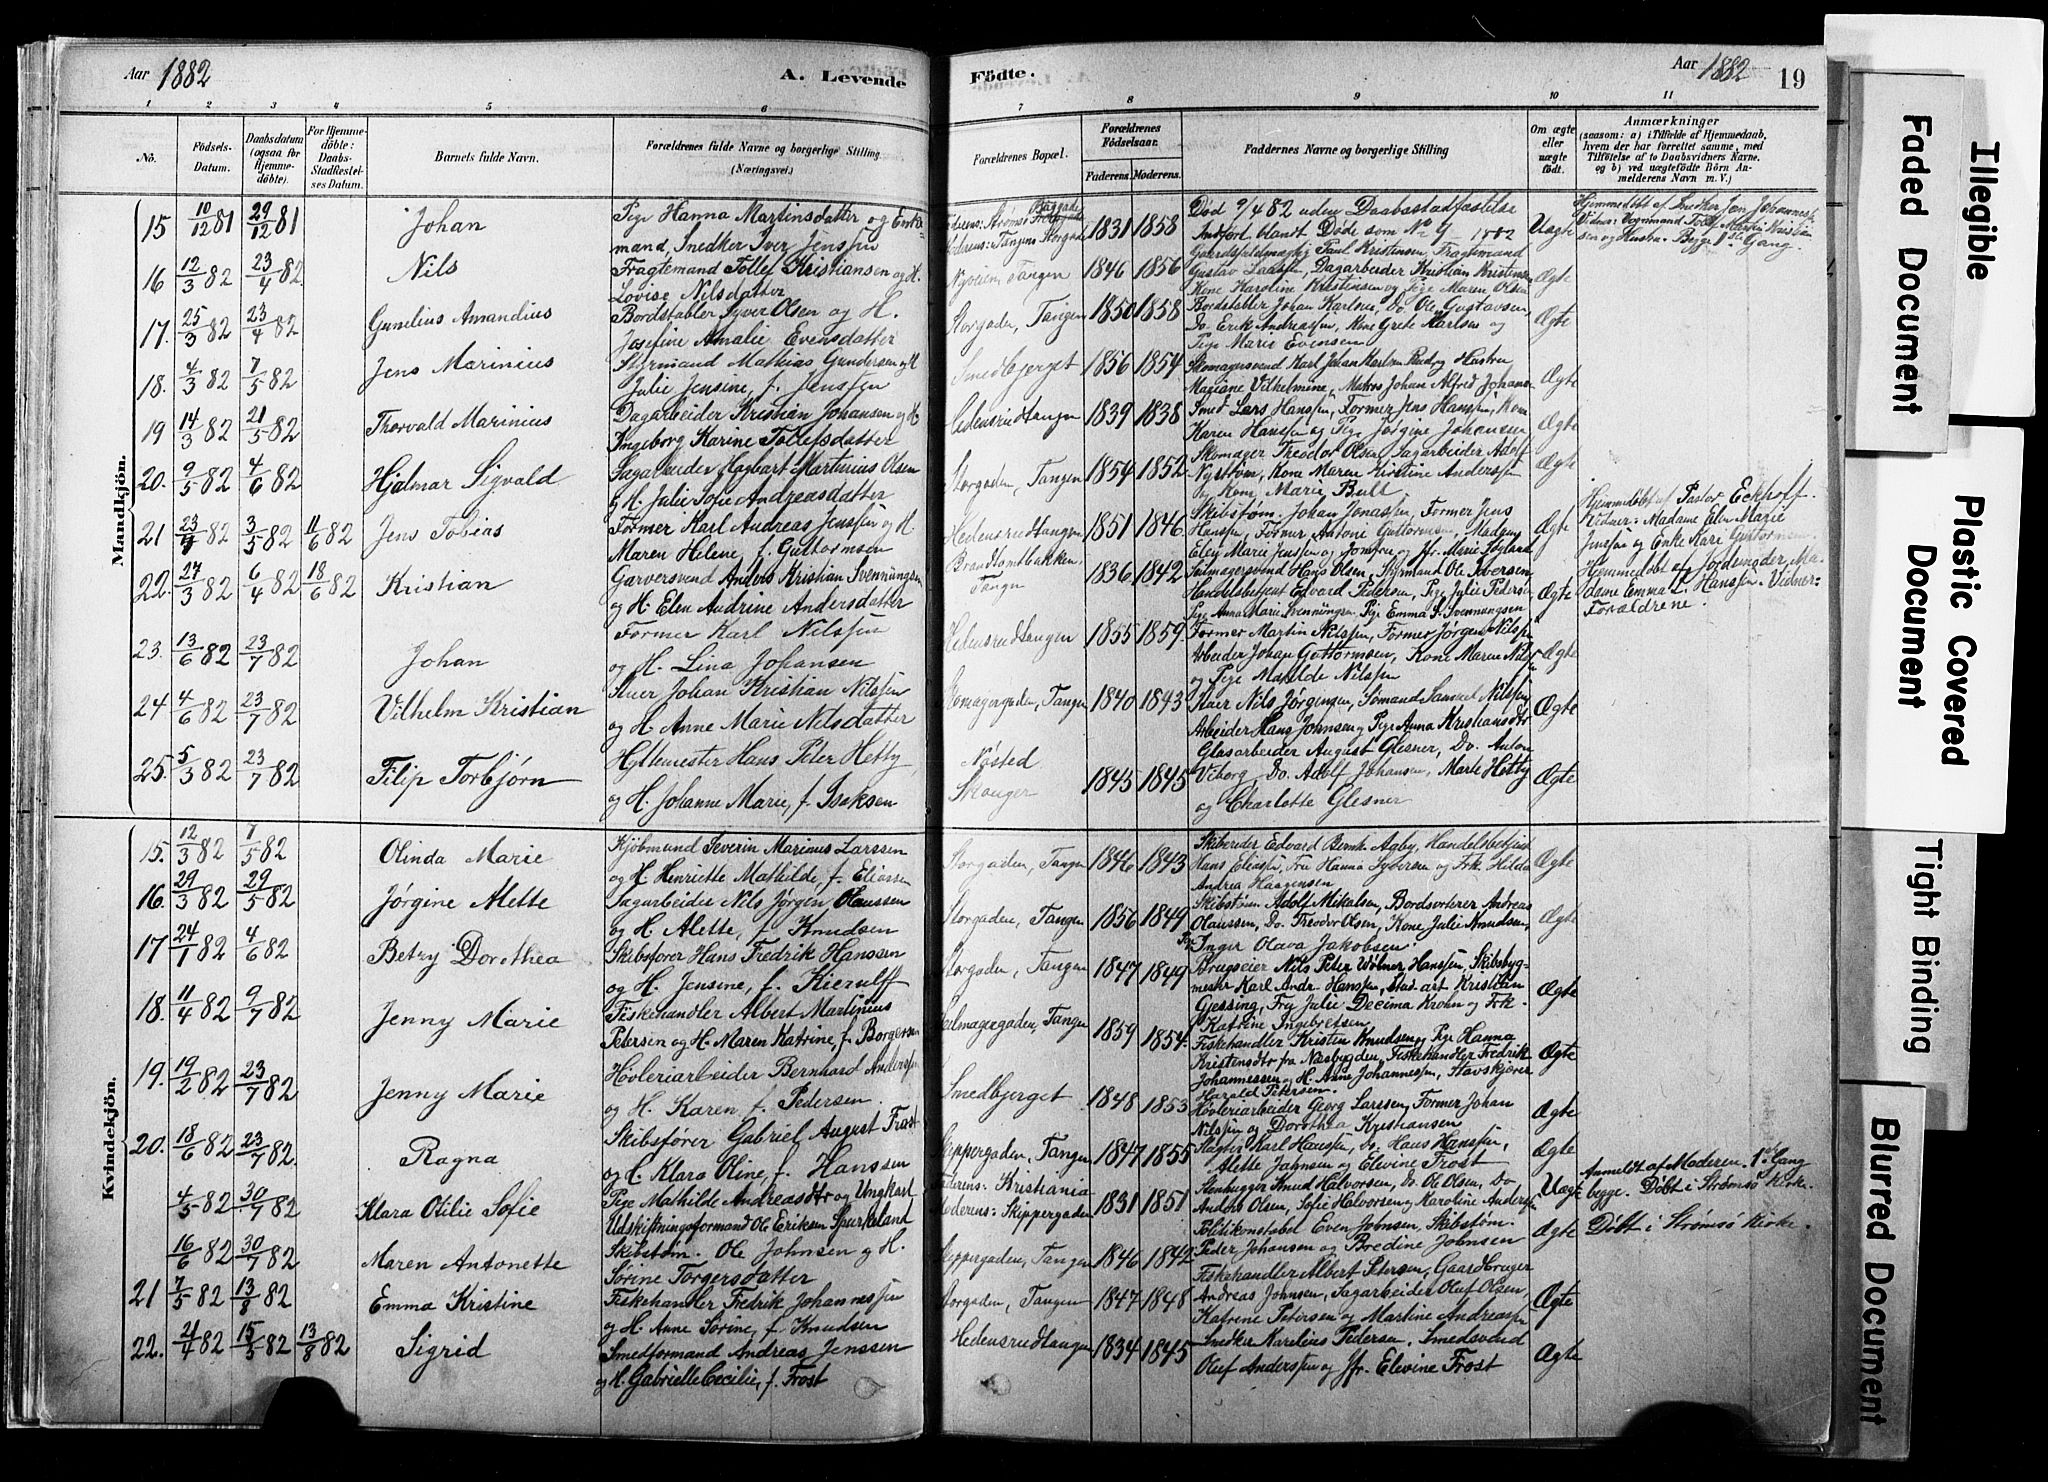 Aar 1882
A. Levende
Födte.
Aar 1882
19
1 2 3 4 5 6 7 8 9 10 11
No.
Födsels-Datum.
Daabsdatum (ogsaa for Hjemme-döbte).
For Hjemme-döbte: Daabs-Stadfæstel-ses Datum.
Barnets fulde Navn.
Forældrenes fulde Navne og borgerlige Stilling (Næringsvei).
Forældrenes Bopæl.
Forældrenes Födselsaar.
Faderens. Moderens.
Faddernes Navne og borgerlige Stilling
Om ægte eller uægte födt.
Anmærkninger
(saasom: a) i Tilfælde af Hjemmedaab, hvem der har forrettet samme, med Tilföielse af to Daabsvidners Navne, og b) ved uægtefödte Börn Anmelderens Navn m. V.)
Mandkjön.
15 10/12 81 29/12 81 Johan
Pige Hanna Martinsdatter og Enke-
mand, Snedker Iver Jenssen
1831 1858
Död 9/4 82 uden Daabsstadfæstelse
Indført blandt Døde som No 9 1882
Uægte
16 12/3 82 23/4 82 Nils
Fragtemand Tollef Kristiansen og H.
Lovise Nilsdatter
Nyveien, Tangen
1846 1856
Paul Kristensen, Fragtemand
Gustav Laassen, Dagarbeider Kristian Kristensen
Kone Karoline Kristensen og Pige Maren Olsen
Ægte
17. 25/3 82 23/4 82 Gunelius Amandius
Bordstabler Syver Olsen og H.
Josefine Amalie Evensdatter
Storgaden, Tangen
1850 1858
Bordstabler Johan Karlsen, Do. Ole Gustavsen,
Do. Erik Andreassen, Kone Grete Karlsen og
Pige Marie Evensen
Ægte
18. 4/3 82 7/5 82 Jens Marinius
Styrmand Mathias Gundersen og H
Julie Jensine, f. Jenssen
Smedbjerget
1856 1854
Skomagersvend Karl Johan Karlsen Rud og Hustru
Mariane Vilhelmine, Matros Johan Alfred Johans.
Ægte
19 14/3 82 21/5 82 Thorvald Marinius
Dagarbeider Kristian Johansen og H.
Ingeborg Karine Tollefsdatter
Hedensrudtangen
1839 1838
Smed Lars Hanssen, Former Jens Hanssen, Kone
Karen Hanssen og Pige Jørgine Johansen
Ægte
20. 9/5 82 4/6 82 Hjalmar Sigvald
Sagarbeider Hagbart Martinius Olsen
og H. Julie Sofie Andreasdatter
Storgaden, Tangen
1854 1852
Skomager Theodor Olsen, Sagarbeider Adolf
Nystrøm, Kone Maren Kirstine Anderssen
og Kone Marie Bull
Ægte
21 82 3/5 82 11/6 82 Jens Tobias
Former Karl Andreas Jenssen og H
Maren Helene, f. Guttormsen
Hedensrudtangen
1851 1846
Skibstøm. Johan Jonassen, Former Jens
Hanssen, Former Antoni Guttormsen, Madam
Elen Marie Jenssen og Jomfru
Ægte
Hjemmedøbt af Pastor Eckhoff.
Vidner: Madame Elen Marie
Jenssen og Enke Kari Guttormsen
22. 27/3 82 6/4 82 18/6 82 Kristian
Garversvend Anders Kristian Svenningsen
og H. Elen Andrine Andersdatter
Brandtombakken,
Tangen
1836 1842
Seilmagersvend Hans Olsen, Styrmand Ole Iversen,
Handelsbetjent Edvard Pedersen, Pige Julie Pedersen
Pige Anna Marie Svenningsen Pige Emma S. Svenningsen
Ægte
Hjemmedøbt af Jordemoder Ma-
dame Emma L. Hanssen. Vidner:
Forældrene.
23. 13/6 82 23/7 82 Johan
Former Karl Nilssen
og H. Lina Johansen
Hedensrudtangen
1855 1859
Former Martin Nilssen, Former Jørgen Nilssen
Arbeider Johan Guttormsen, Kone Maren Nilssen
og Pige Matilde Nilssen
Ægte
24 4/6 82 23/7 82 Vilhelm Kristian
Stuer Johan Kristian Nilssen
og H. Anne Marie Nilsdatter
Skomagergaden, Tangen
1840 1843
Stuer Nils Jørgensen, Sømand Samuel Nilssen
Arbeider Hans Johnsen og Pige Anna Kristiansdtr
Ægte
25. 5/3 82 23/7 82 Filip Torbjørn
Hyttemester Hans Peter Hetty
og H. Johanne Marie, f. Isaksen
Nøsted
Skouger
1843 1845
Glasarbeider August Glesner, Do. Anton
Viborg, Do. Adolf Johansen, Marie Hetty
og Charlotte Glesner
Ægte
Kvindekjön.
15. 12/3 82 7/5 82 Olinda Marie
Kjøbmand Severin Marinus Larssen
og H. Henriette Mathilde, f. Eliassen
Storgaden, Tangen
1846 1843
Skibsreder Edvard Bernh. Aaby, Handelsbetjent
Hans Eliassen, Fru Hanna Syversen og Frk. Hilda
Andrea Haagensen
Ægte
16. 29/3 82 29/5 82 Jørgine Alette
Sagarbeider Nils Jørgen Olaussen
og H. Alette, f. Knudsen
Storgaden, Tangen
1856 1849
Skibstøm Adolf Mikalsen, Bordsorterer Andreas
Olaussen, Do. Theodor Olsen, Kone Julie Knudsen,
Pige Inger Olava Jakobsen
Ægte
17 24/1 82 4/6 82 Betzy Dorothea
Skibsfører Hans Fredrik Hanssen
og H. Jensine, f. Kierulff
Storgaden, Tangen
1847 1849
Brugseier Nils Peter Wölner Hanssen, Skibsbyg-
mester Karl Andr. Hanssen, Stud. art Kristian
Gjessing, Frk Julie Decima Krohn og Frk.
Katrine Ingebretsen
Ægte
18. 11/4 82 9/7 82 Jenny Marie
Fiskehandler Albert Martinius
Petersen og H. Maren Katrine, f. Borgersen
Seilmagergaden, Tangen
1859 1854.
Fiskehandler Kristen Knudsen og Pige Hanna
Kristensdtr fra Næsbygden, Fiskehandler Fredrik
Johannessen og H. Anne Johannessen, Stavskjærer
Harald Petersen.
Ægte
19. 19/2 82 23/7 82 Jenny Marie
Høvleriarbeider Bernhard Anderssen
og H. Karen, f. Pedersen.
Smedbjerget
1848 1853
Høvleriarbeider Georg Larssen, Former Johan
Nilssen og Dorothea Kristiansen
Ægte
20. 18/6 82 23/7 82. Ragna
Skibsfører Gabriel August Frost
og H. Klara Oline, f. Hanssen
Skippergaden, Tangen
1847 1855
Karl Hanssen, Do. Hans Hanssen,
Alette Jahnsen og Elevine Frost
Ægte
4/5 82 30/7 82 Klara Otilie Sofie
Pige Mathilde Andreasdtr og Ungkarl
Udskiftningsformand Ole Eriksen Spurkeland
Faderens: Kristiania
Moderens: Skippergaden
1831 1851
Stenhugger Knud Halvorsen, Do. Ole Olsen, Do
Anders Olsen, Sofie Halvorsen og Karoline Anderssen
Uægte
Anmeldt af Moderen. 1ste Gang
begge. Døbt i Strømsø Kirke.
16/6 82 30/7 82 Maren Antonette
Skibstøm. Ole Johnsen og H.
Sørine Torgersdatter
Skippergaden, Tangen
1846 1842
Politikonstabel Even Johnsen, Skibstøm.
Peder Johansen og Bredine Johnsen
Ægte
Døbt i Strømsø Kirke.
21 7/5 82 13/8 82 Emma Kristine
Fiskehandler Fredrik Johannessen
og H. Anne Sørine, f. Knudsen
Storgaden, Tangen
1847 1848
Fiskehandler Albert Petersen, Gaardbruger
Andreas Johnsen, Sagarbeider Oluf Olsen,
Katrine Petersen og Martine Andreassen
Ægte
22. 21/4 82 15/5 82 13/8 82 Sigrid
Smedformand Andreas Jenssen
og H. Gabrielle Cecilie, f. Frost
Hedensrudtangen
1834 1845
Smedker Karelius Pedersen, Smedsvend
Oluf Anderssen og Jfr. Elevine Frost
Ægte
Illegible
Faded Document
Plastic Covered Document
Tight Binding
Blurred Document